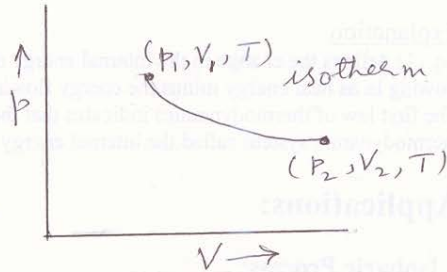 (p₁, V₁, T)
isotherm.
↑
p
(p₂, V₂, T)
V →